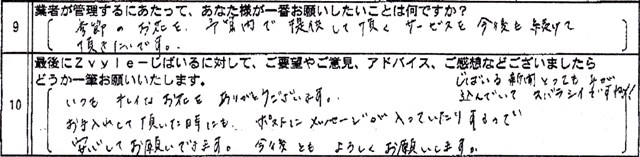 9
業者が管理するにあたって、あなた様が一番お願いしたいことは何ですか？
季節のお花を、予算内で提供して頂くサービスを今後も続けて
頂きたいです。
10
最後にZvyle-じばいるに対して、ご要望やご意見、アドバイス、ご感想などございましたら
どうか一筆お願いいたします。
じばいる新聞とっても手が
込んでいてスバラシイですね!!
いつもキレイなお花をありがとうございます。
お手入れして頂いた時にも、ポストにメッセージが入っていたりするので
安心してお願いできます。今後ともよろしくお願いします。